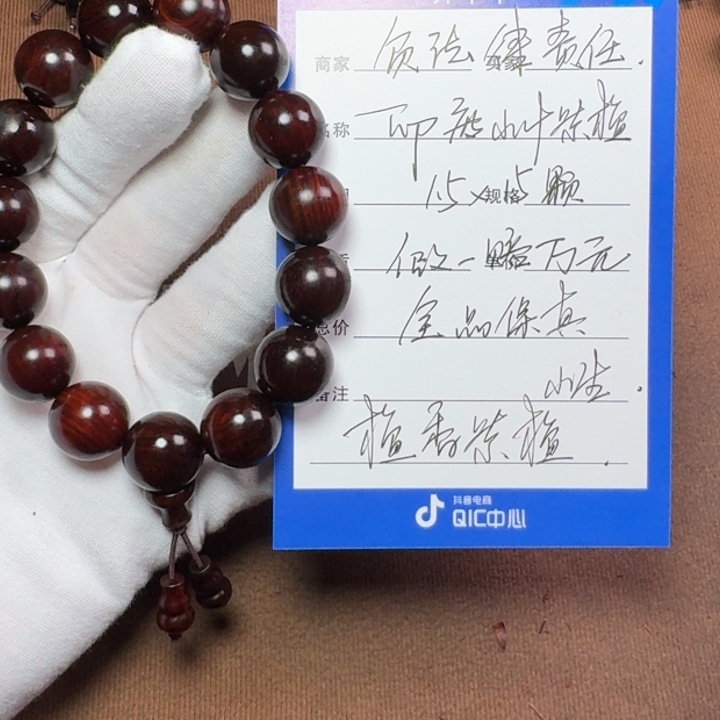 商家 负法律责任.
名称 印度小叶紫檀
15×规格15颗
假一赔万元
总价 全品保真
备注 小陆.
檀香紫檀.
抖音电商
QIC中心